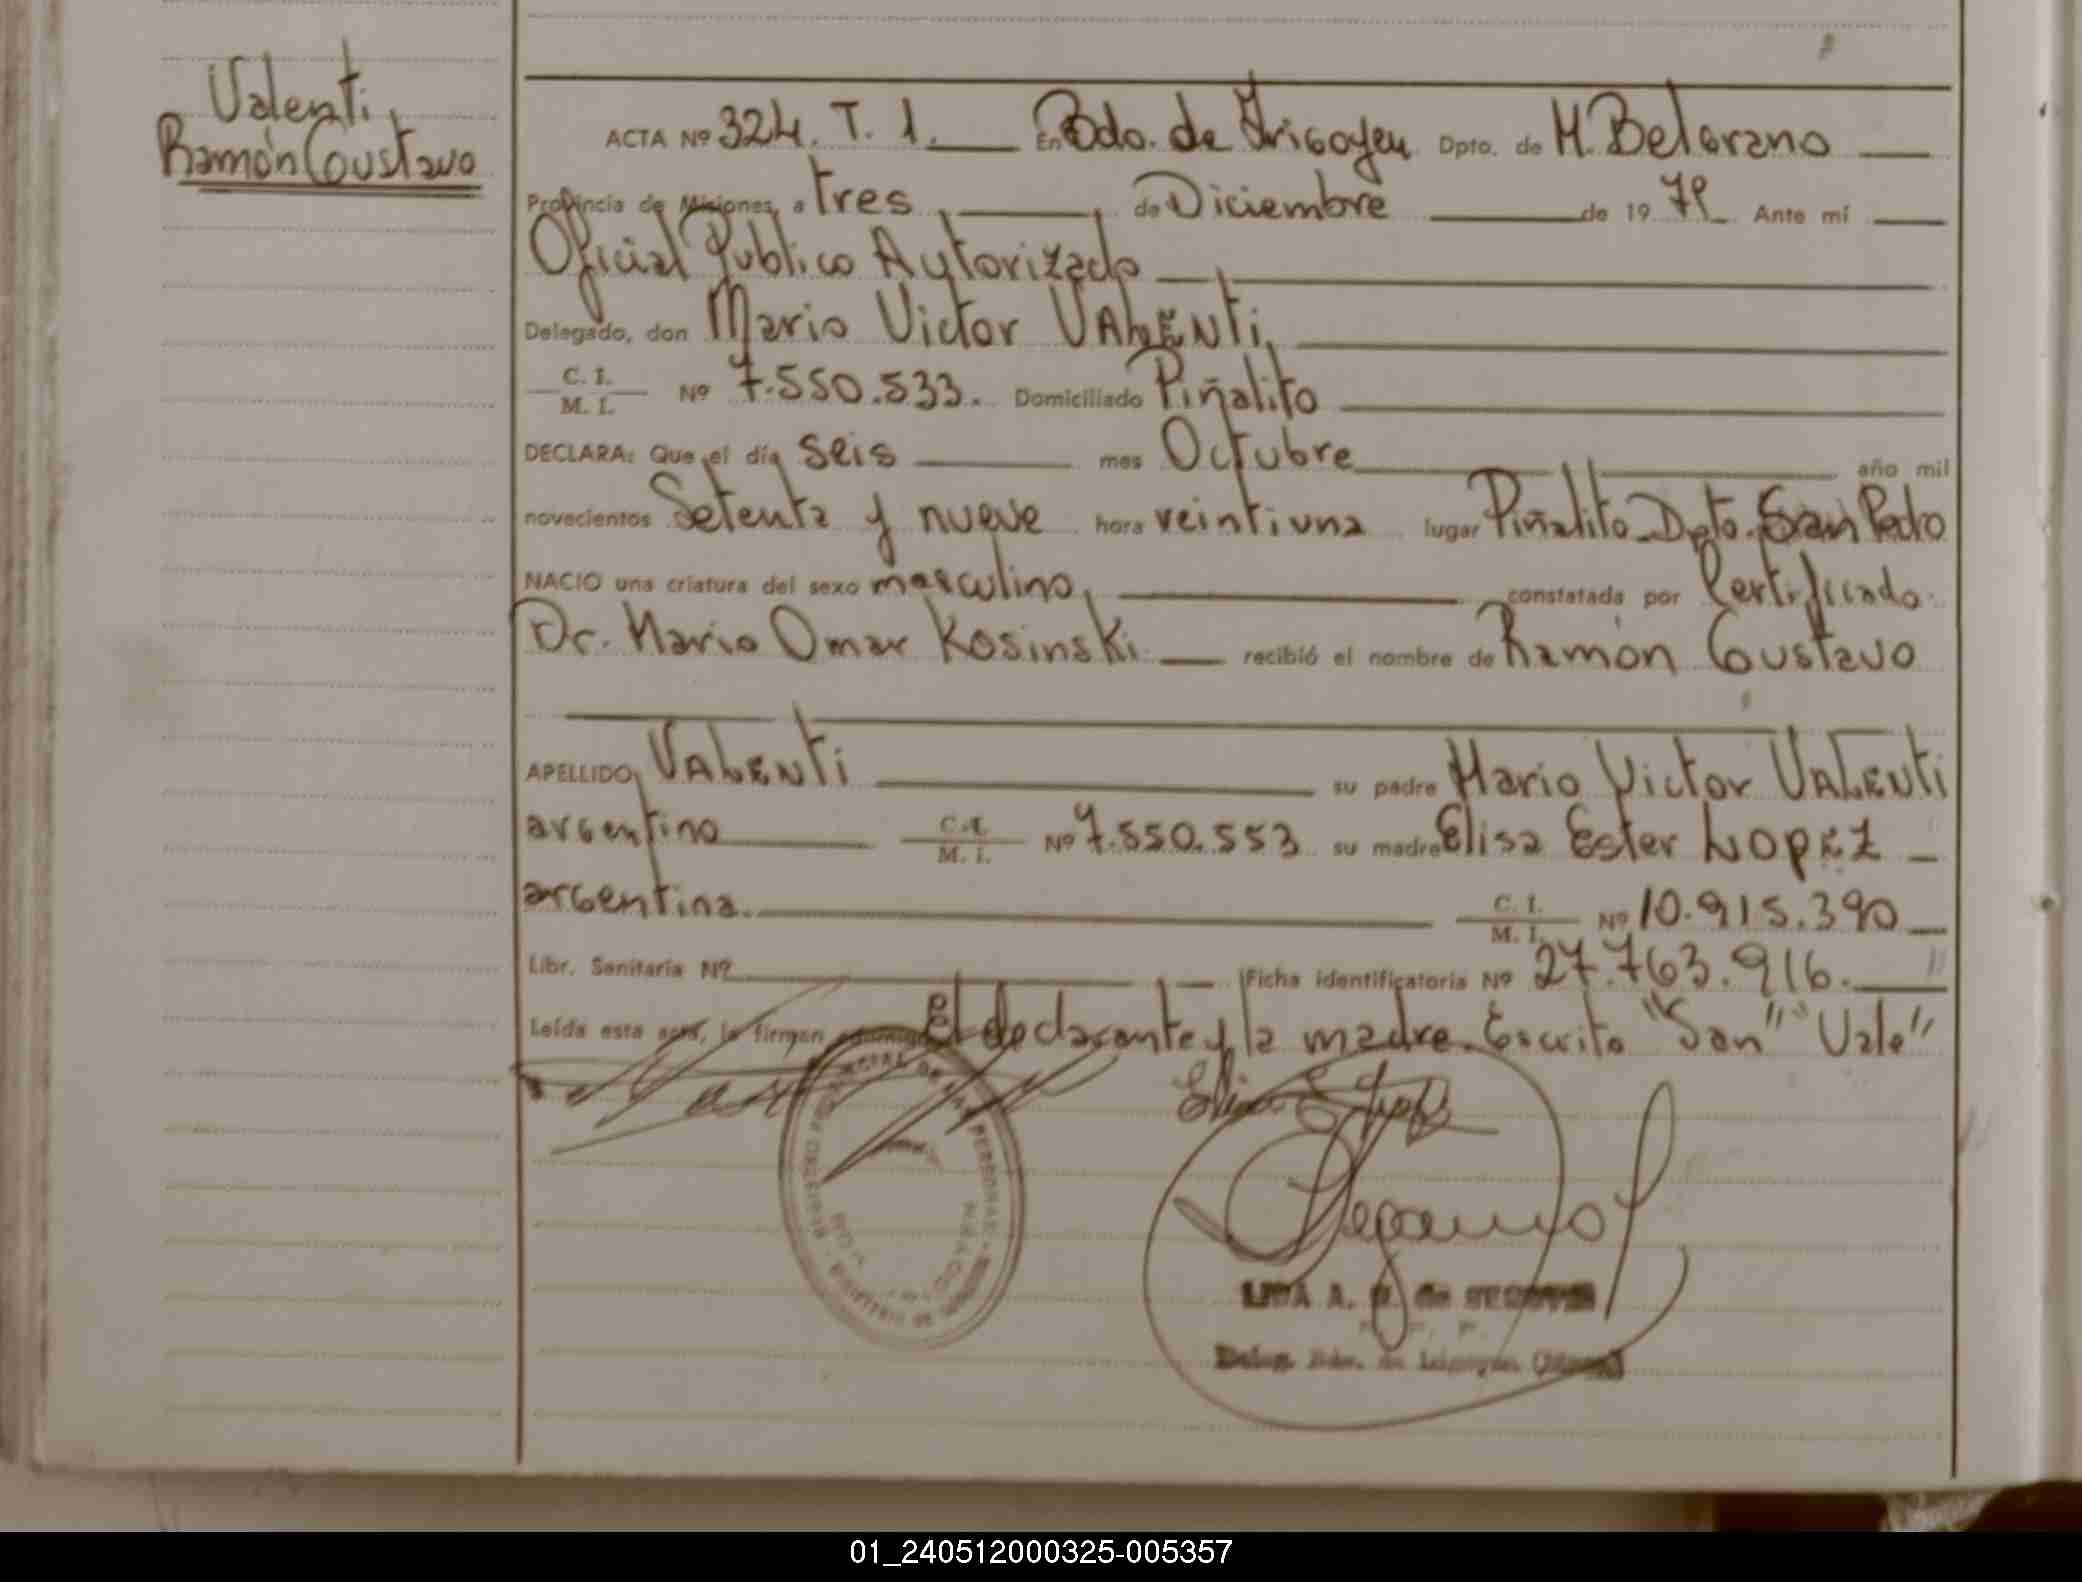 Valenti,
Ramón Gustavo
ACTA Nº 324. T. 1. En Bdo. de Irigoyen Dpto. de M. Belgrano
Provincia de Misiones, a tres, de Diciembre de 19 79 Ante mí
Oficial Publico Autorizado
Delegado, don Mario Victor VALENTi,
C. I.
M. I. Nº 7.550.533. Domiciliado Piñalito
DECLARA: Que el día seis mes Octubre año mil
novecientos Setenta y nueve hora veintiuna lugar Piñalito-Dpto. San Pedro
NACIO una criatura del sexo masculino, constatada por Certificado
Dr. Mario Omar Kosinski recibió el nombre de Ramón Gustavo
APELLIDO VALENTi su padre Mario Victor VALENTi
argentino C. I.
M. I. Nº 7.550.553 su madre Elisa Ester LOPEZ
argentina. C. I.
M. I. Nº 10.915.390
Libr. Sanitaria Nº Ficha identificatoria Nº 27.763.916.
Leída esta acta, la firman El declarante y la madre. Escrito "San" "Vale"
01_240512000325-005357